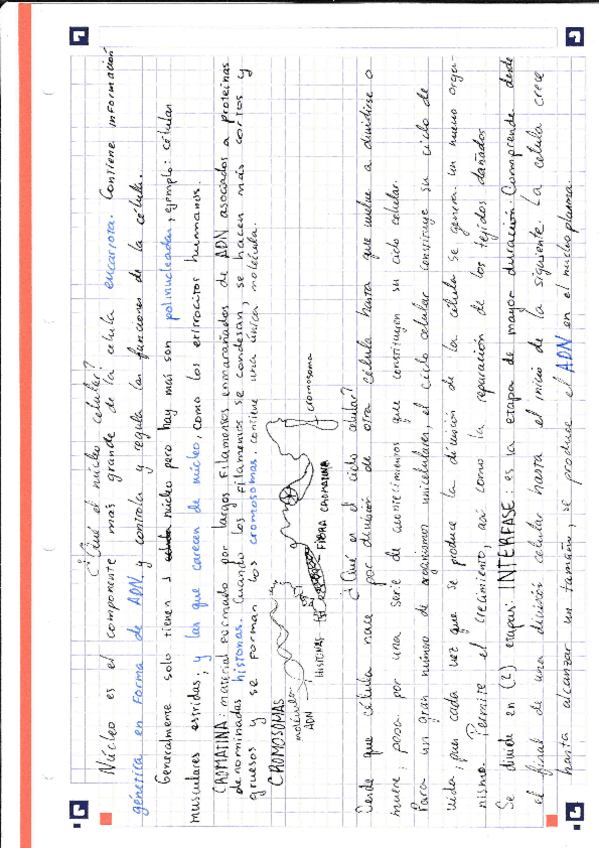 ¿Qué el núcleo celular?
Núcleo es el componente más grande de la célula eucariota. Contiene información
génetica en forma de ADN. y controla y regula las funciones de la célula.
Generalmente solo tienen 1 núcleo pero hay más son polinucleadas, ejemplo: células
musculares estriadas, y las que carecen de núcleo, como los eritrocitos humanos.
CROMATINA: material formado por largos filamentos enmarañados de ADN asociados a proteínas
denominadas histonas. Cuando los filamentos se condesan, se hacen más cortos y
gruesos y se forman los cromosomas. contiene una única molécula.
CROMOSOMAS
molécula
ADN
HISTONAS
FIBRA CROMATINA
cromosoma
¿Qué es el ciclo celular?
Desde que célula nace por división de otra célula hasta que vuelve a dividirse o
muere, pasa por una serie de acontecimientos que constituyen su ciclo celular.
Para un gran número de organismos unicelulares, el ciclo celular constituye su ciclo de
vida, pues cada vez que se produce la división de la célula se genera un nuevo orga-
nismo. Permite el crecimiento, así como la reparación de los tejidos dañados
Se divide en (2) etapas: INTERFASE: es la etapa de mayor duración. Comprende desde
el final de una división celular hasta el inicio de la siguiente. La célula crece
hasta alcanzar un tamaño, se produce el ADN en el nucleoplasma.